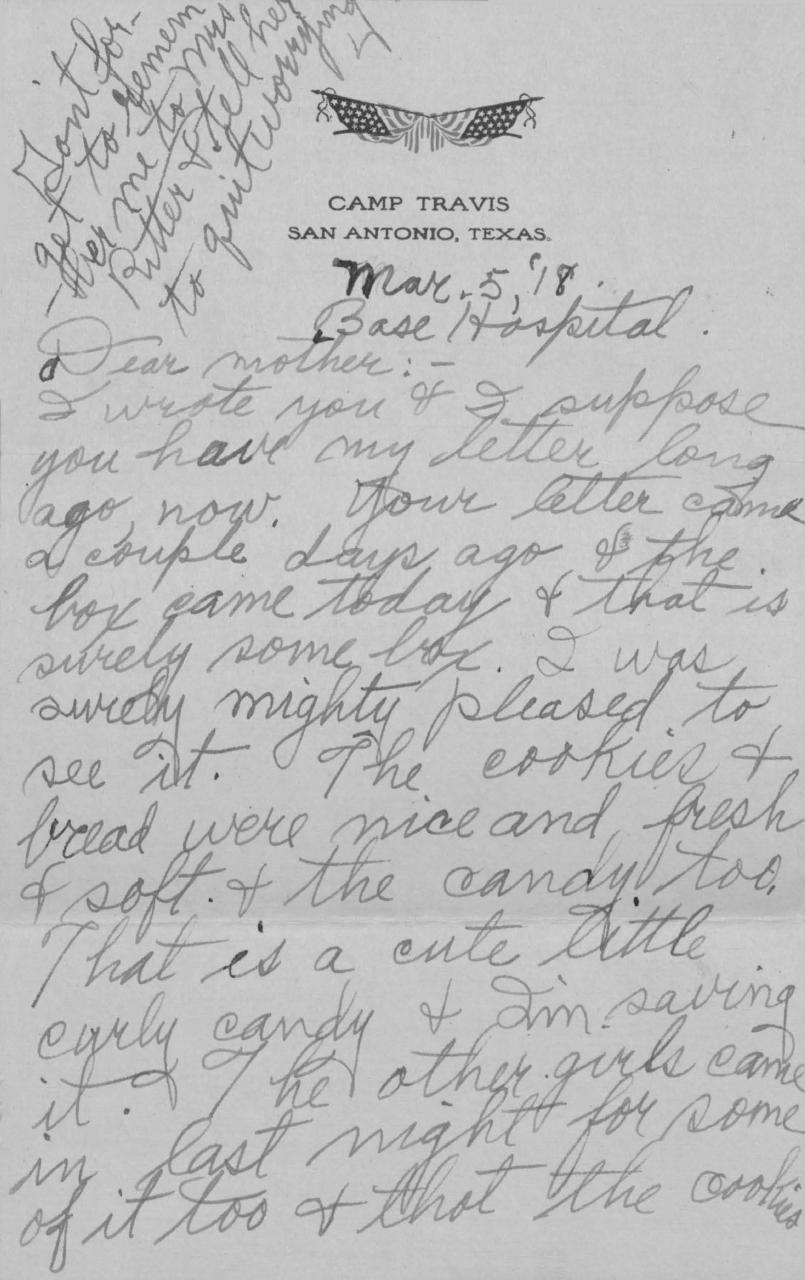 Dont for-
get to remem
-ber me to Mrs
Ritter & tell her
to quit worrying
CAMP TRAVIS
SAN ANTONIO, TEXAS.
Mar. 5, '18.
Base Hospital.
Dear mother:-
I wrote you & I suppose
you have my letter long
ago, now. Your letter came
a couple days ago & the
box came today & that is
surely some box. I was
surely mighty pleased to
see it. The cookies &
bread were nice and fresh
& soft. & the candy too.
That is a cute little
curly candy & I'm saving
it. & The other girls came
in last night for some
of it too & that the cookies